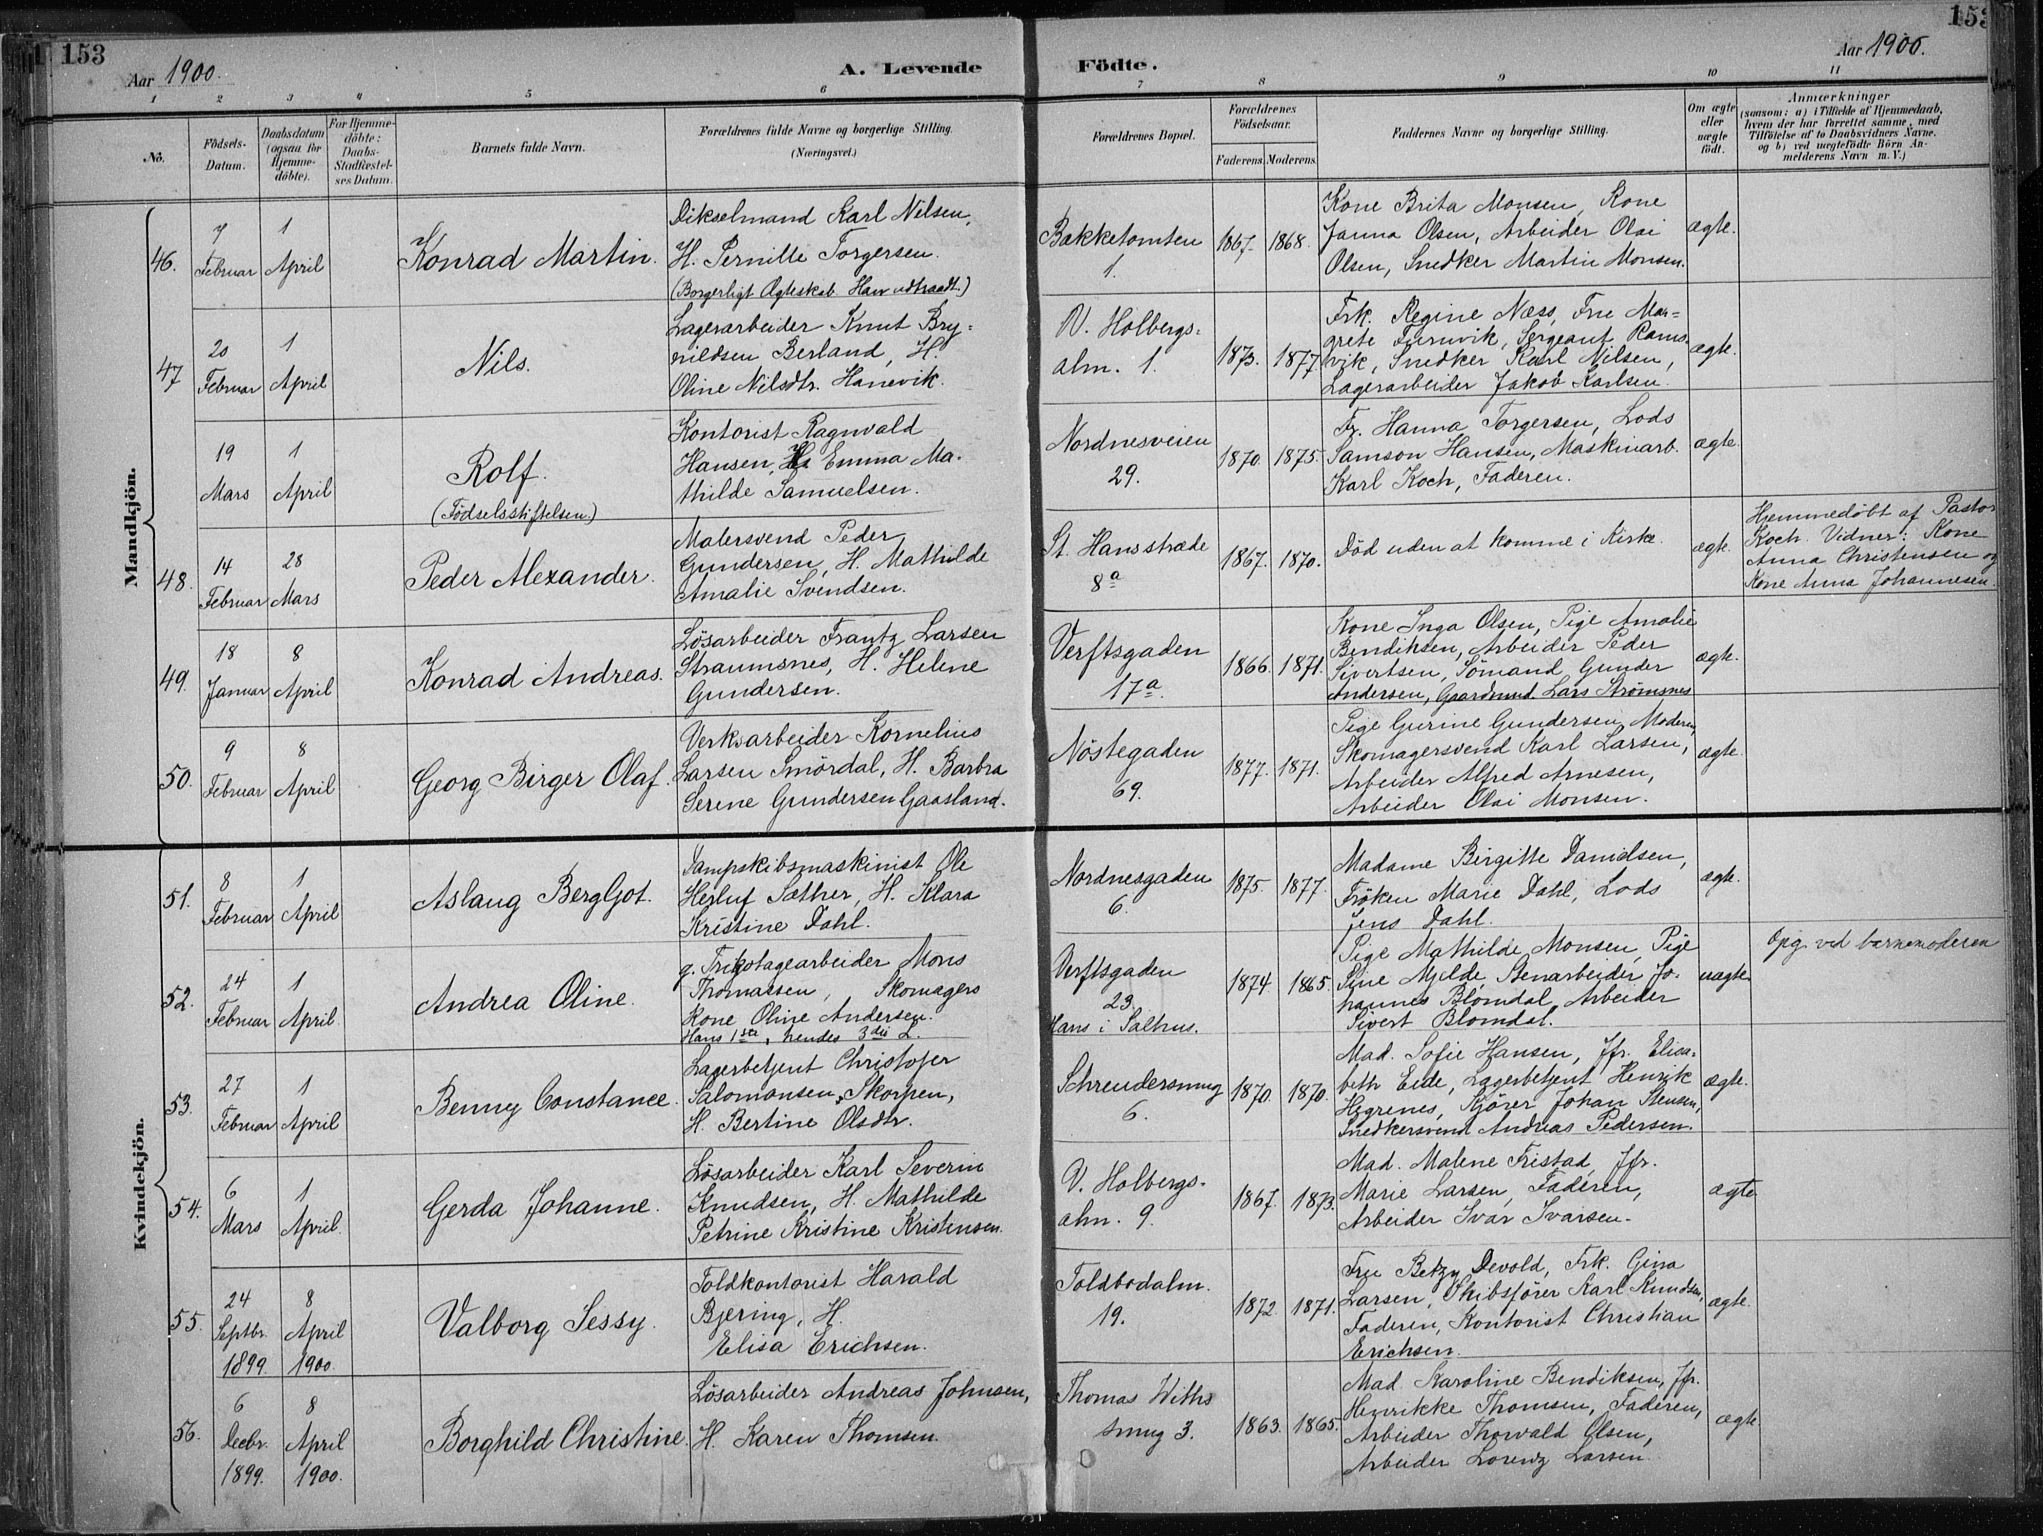 153
Aar 1900.
A. Levende
Födte.
Aar 1900.
153
1 2 3 4 5 6 7 8 9 10 11
No.
Födsels-
Datum.
Daabsdatum
(ogsaa for
Hjemme-
döbte).
For Hjemme-
döbte:
Daabs-
Stadfæstel-
ses Datum.
Barnets fulde Navn.
Forældrenes fulde Navne og borgerlige Stilling.
(Næringsvei.)
Forældrenes Bopæl.
Forældrenes
Födselsaar.
Faderens. Moderens.
Faddernes Navne og borgerlige Stilling.
Om ægte
eller
uægte
födt.
Anmærkninger
(saasom: a) i Tilfælde af Hjemmedaab,
hvem der har forrettet samme, med
Tilföielse af to Daabsvidners Navne.
og b) ved uægtefödte Börn An-
melderens Navn m. V.)
Mandkjön.
46.
7
Februar
1
April
Konrad Martin.
Dikselmand Karl Nilsen,
H. Pernille Torgersen.
(Borgerligt Ægteskab Han udtraadt.)
Bakketomten
1.
1867. 1868.
Kone Brita Monsen, Kone
Janna Olsen, Arbeider Olai
Olsen, Snedker Martin Monsen.
ægte.
47
20
Februar
1
April
Nils.
Lagerarbeider Knut Bry-
nildsen Berland, H.
Oline Nilsdtr. Hanevik.
V. Holbergs-
alm. 1.
1873. 1877.
Frk. Regine Næss, Fru Mar-
grete Furnvik, Sergeant Rams-
vik, Snedker Karl Nilsen,
Lagerarbeider Jakob Karlsen.
ægte.
19
Mars
1
April
Rolf.
(Födselsstiftelsen.)
Kontorist Ragnvald
Hansen, H. Emma Ma-
thilde Samuelsen.
Nordnesveien
29.
1870. 1875.
Fr. Hanna Torgersen, Lods
Samson Hansen, Maskinarb.
Karl Koch, Faderen.
ægte.
48.
14
Februar
28
Mars
Peder Alexander.
Malersvend Peder
Gundersen, H. Mathilde
Amalie Svendsen.
St. Hansstræde
8a
1867. 1870.
Död uden at komme i Kirke.
ægte.
Hjemmedöbt af Pastor
Koch. Vidner: Kone
Anna Christensen og
Kone Anna Johannesen.
49.
18
Januar
8
April
Konrad Andreas.
Lösarbeider Frantz Larsen
Straumsnes, H. Helene
Gundersen.
Verftsgaden
17a.
1866. 1871.
Kone Inga Olsen, Pige Amalie
Bendiksen, Arbeider Peder
Sivertsen, Sömand Gunder
Andersen, Gaardmd. Lars Strömsnes
ægte.
50.
9
Februar
8
April
Georg Birger Olaf.
Verksarbeider Kornelius
Larsen Smördal, H. Barbra
Serine Gundersen Gaasland.
Nöstegaden
69.
1877. 1871.
Pige Gurine Gundersen, Moderen,
Skomagersvend Karl Larsen,
Arbeider Alfred Arnesen,
Arbeider Olai Monsen.
ægte.
Kvindekjön.
51.
8
Februar
1
April
Aslaug Bergljot.
Dampskibsmaskinist Ole
Herluf Sæther, H. Klara
Kristine Dahl.
Nordnesgaden
6.
1875. 1877.
Madame Birgitte Danielsen,
Fröken Marie Dahl, Lods
Jens Dahl.
ægte.
52.
24
Februar
1
April.
Andrea Oline.
g. Trikotagearbeider Mons
Thomassen, Skomagers
Kone Oline Andersen.
Hans 1ste, hendes 3die L.
Verftsgaden
23.
Hans i Salhus.
1874. 1865.
Pige Mathilde Monsen, Pige
Sine Mjelde, Benarbeider Jo-
hannes Blomdal, Arbeider
Sivert Blomdal.
uægte
Opg. ved barnemoderen
53.
27
Februar
1
April
Benny Constance.
Lagerbetjent Christofer
Salomonsen Skorpen,
H. Bertine Olsdtr.
Schreudersmug
6.
1870. 1870.
Mad. Sofie Hansen, Jfr. Elisa-
beth Eide, Lagerbetjent Henrik
Hegrenes, Kjörer Johan Stensen,
Snedkersvend Andreas Pedersen.
ægte.
54.
6
Mars
1
April.
Gerda Johanne.
Lösarbeider Karl Severin
Knudsen, H. Mathilde
Petrine Kristine Kristensen.
V. Holbergs-
alm. 9.
1867. 1873.
Mad. Malene Fristad, Jfr.
Marie Larsen, Faderen,
Arbeider Ivar Ivarsen.
ægte
55.
24
Septbr.
1899.
8
April
1900.
Valborg Sessy.
Toldkontorist Harald
Bjering, H.
Elisa Erichsen.
Toldbodalm.
19.
1872. 1871.
Fru Betzy Devold, Frk. Gina
Larsen, Skibsförer Karl Knudsen,
Faderen, Kontorist Christian
Erichsen.
ægte.
56.
6
Decbr.
1899.
8
April
1900.
Borghild Christine.
Lösarbeider Andreas Johnsen,
H. Karen Thomsen.
Thomas Withs
smug 3.
1863. 1865.
Mad. Karoline Bendiksen, Jfr.
Henrikke Thomsen, Faderen,
Arbeider Thorvald Olsen,
Arbeider Lorenz Larsen.
ægte